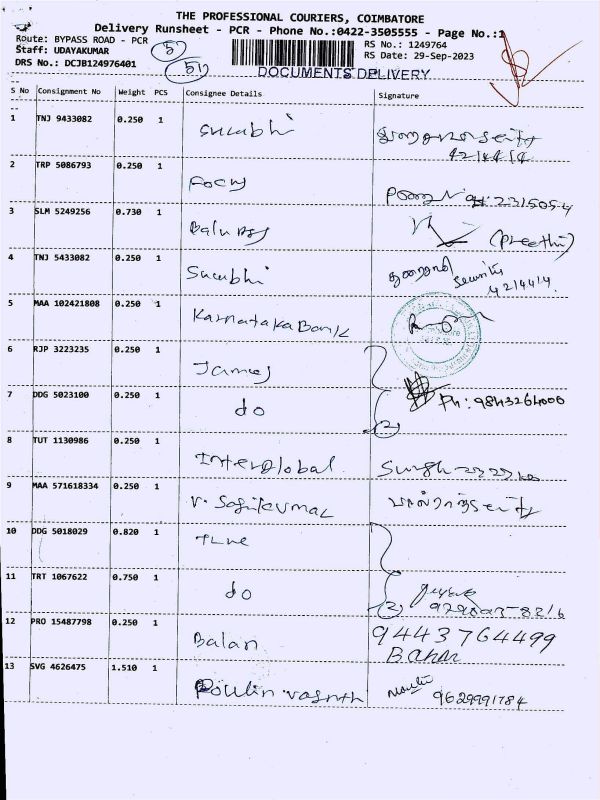 THE PROFESSIONAL COURIERS, COIMBATORE
Delivery Runsheet - PCR - Phone No.:0422-3505555 - Page No.:1
Route: BYPASS ROAD - PCR
Staff: UDAYAKUMAR
DRS No.: DCJB124976401
RS No.: 1249764
RS Date: 29-Sep-2023
DOCUMENTS DELIVERY
S No Consignment No Weight PCS Consignee Details Signature
1 TNJ 9433082 0.250 1 Surabhi
4214414
2 TRP 5086793 0.250 1 Focus
3 SLM 5249256 0.730 1 (Preethi)
4 TNJ 5433082 0.250 1 Surabhi
4214414
5 MAA 102421808 0.250 1 Karnataka Bank
6 RJP 3223235 0.250 1 James
7 DDG 5023100 0.250 1 do Ph: 9843264000
(2)
8 TUT 1130986 0.250 1 Interglobal
9 MAA 571618334 0.250 1 V. Sasikumar
10 DDG 5018029 0.820 1
11 TRT 1067622 0.750 1 do
(2)
12 PRO 15487798 0.250 1 Balan 9443764499
13 SVG 4626475 1.510 1 9629991784